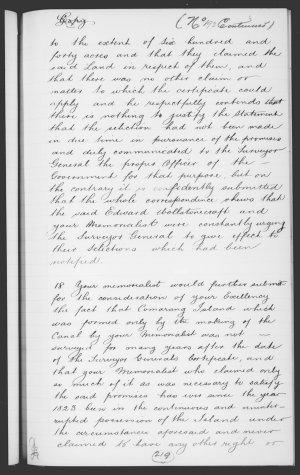 Copy
(No 192 Continued)
to the extent of six hundred and
forty acres and that they claimed the
said Land in respect of them, and
that there was no other claim or
matter to which the certificate could
apply and he respectfully contends that
there is nothing to justify the statement
that the selection had not been made
in due time in pursuance of the promises
and duly communicated to the Surveyor
General the proper Officer of the
Government for that purpose, but on
the contrary it is confidently submitted
that the whole correspondence shows that
the said Edward Wollstonecraft and
your Memorialist were constantly urging
the Surveyor General to give effect to
their Selections which had been
notified.
18 Your memorialist would further submit
for the consideration of your Excellency
the fact that Comarang Island which
was formed only by the making of the
Canal by your Memorialist was not
surveyed for many years after the date
of the Surveyor Generals Certificate, and
that your Memorialist who claimed only
so much of it as was necessary to satisfy
the said promises has ever since the year
1823 been in the continuous and uninter-
rupted possession of the Island under
the circumstances aforesaid and never
claimed to have any other right or
(219)